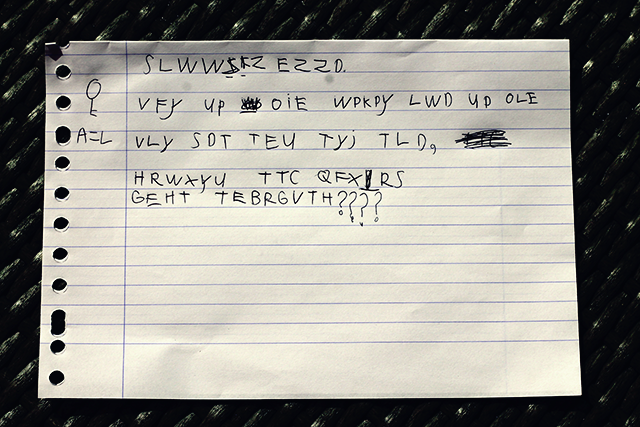 SLWWSKZ EZZD.
VFY UP OIE WPKPY LWD UP OLE
A=L VLY SDT TEU TYJ TLD,
HRWXYU TTC QFX RS
GEHT TEBRGVTH????